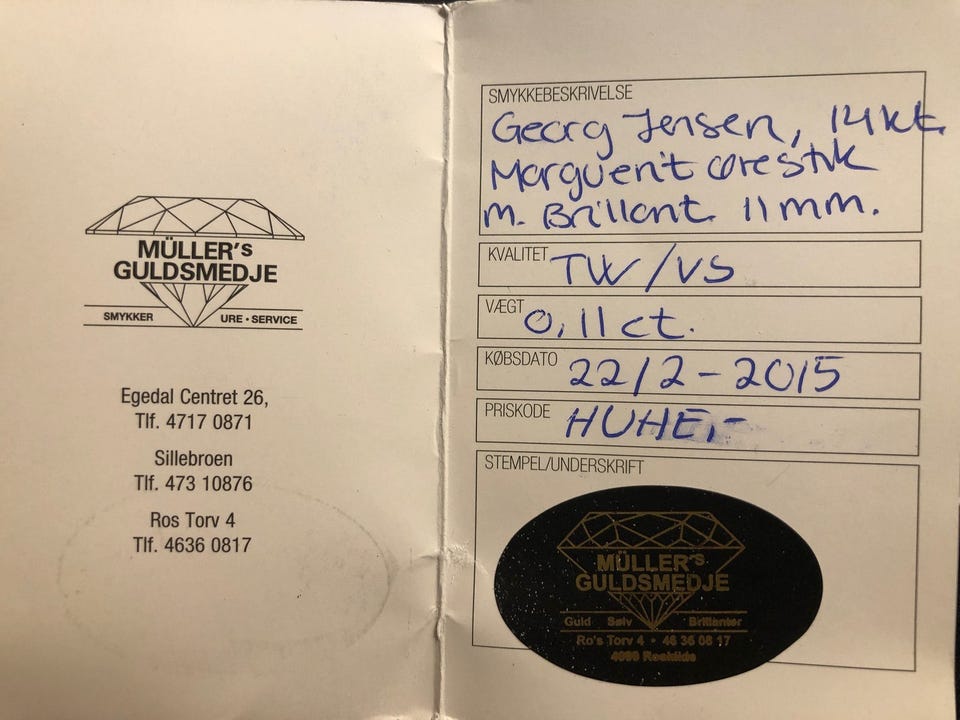 MÜLLER's
GULDSMEDJE
SMYKKER URE • SERVICE
Egedal Centret 26,
Tlf. 4717 0871
Sillebroen
Tlf. 473 10876
Ros Torv 4
Tlf. 4636 0817
SMYKKEBESKRIVELSE
Georg Jensen, 14kt.
Marguerit ørestik
m. Brillant. 11mm.
KVALITET TW/VS
VÆGT 0,11ct.
KØBSDATO 22/2-2015
PRISKODE HUHE,-
STEMPEL/UNDERSKRIFT
MÜLLER's
GULDSMEDJE
Guld Sølv Brillanter
Ro's Torv 4 • 46 36 08 17
4000 Roskilde